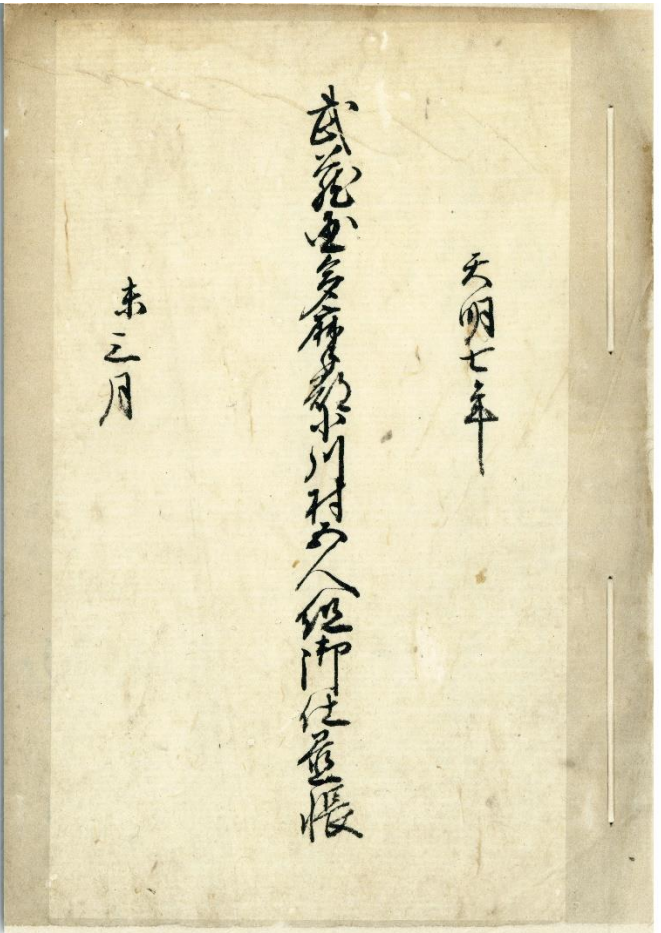 天明七年
武蔵国多麻郡小川村五人組御仕置帳
未三月